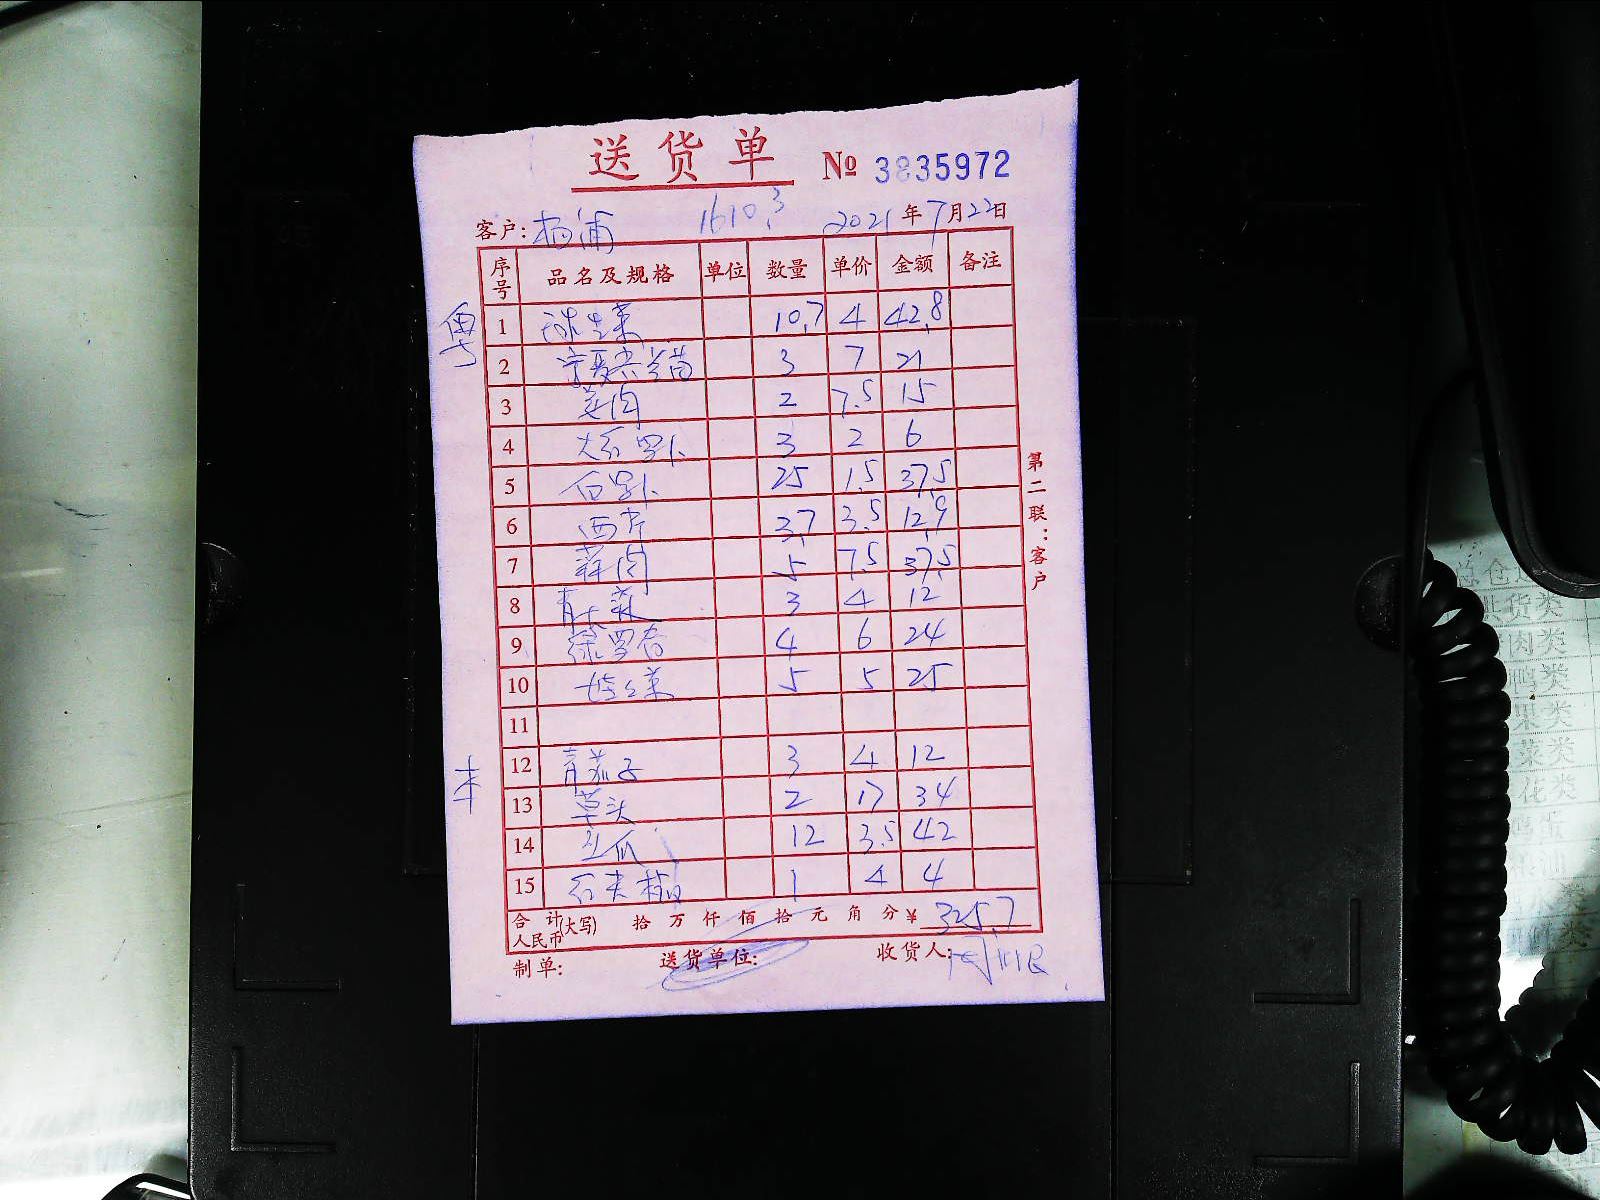 送货单 № 3835972
1610.3
客户: 杨浦 2021年7月22日
序号 品名及规格 单位 数量 单价 金额 备注
粤
1 球生菜 10.7 4 42.8
2 宁夏菜苔苗 3 7 21
3 姜肉 2 7.5 15
4 大红罗卜 3 2 6
5 白罗卜 25 1.5 37.5
6 西芹 3.7 3.5 12.9
7 蒜肉 5 7.5 37.5
8 青大蒜 3 4 12
9 绿罗春 4 6 24
10 娃娃菜 5 5 25
11
本
12 青茄子 3 4 12
13 草头 2 17 34
14 丝瓜 12 3.5 42
15 红尖椒 1 4 4
合计人民币(大写) 拾 万 仟 佰 拾 元 角 分 ¥ 325.7
制单: 送货单位: 收货人:
第二联:客户
货类
肉类
鸭类
果类
菜类
花类